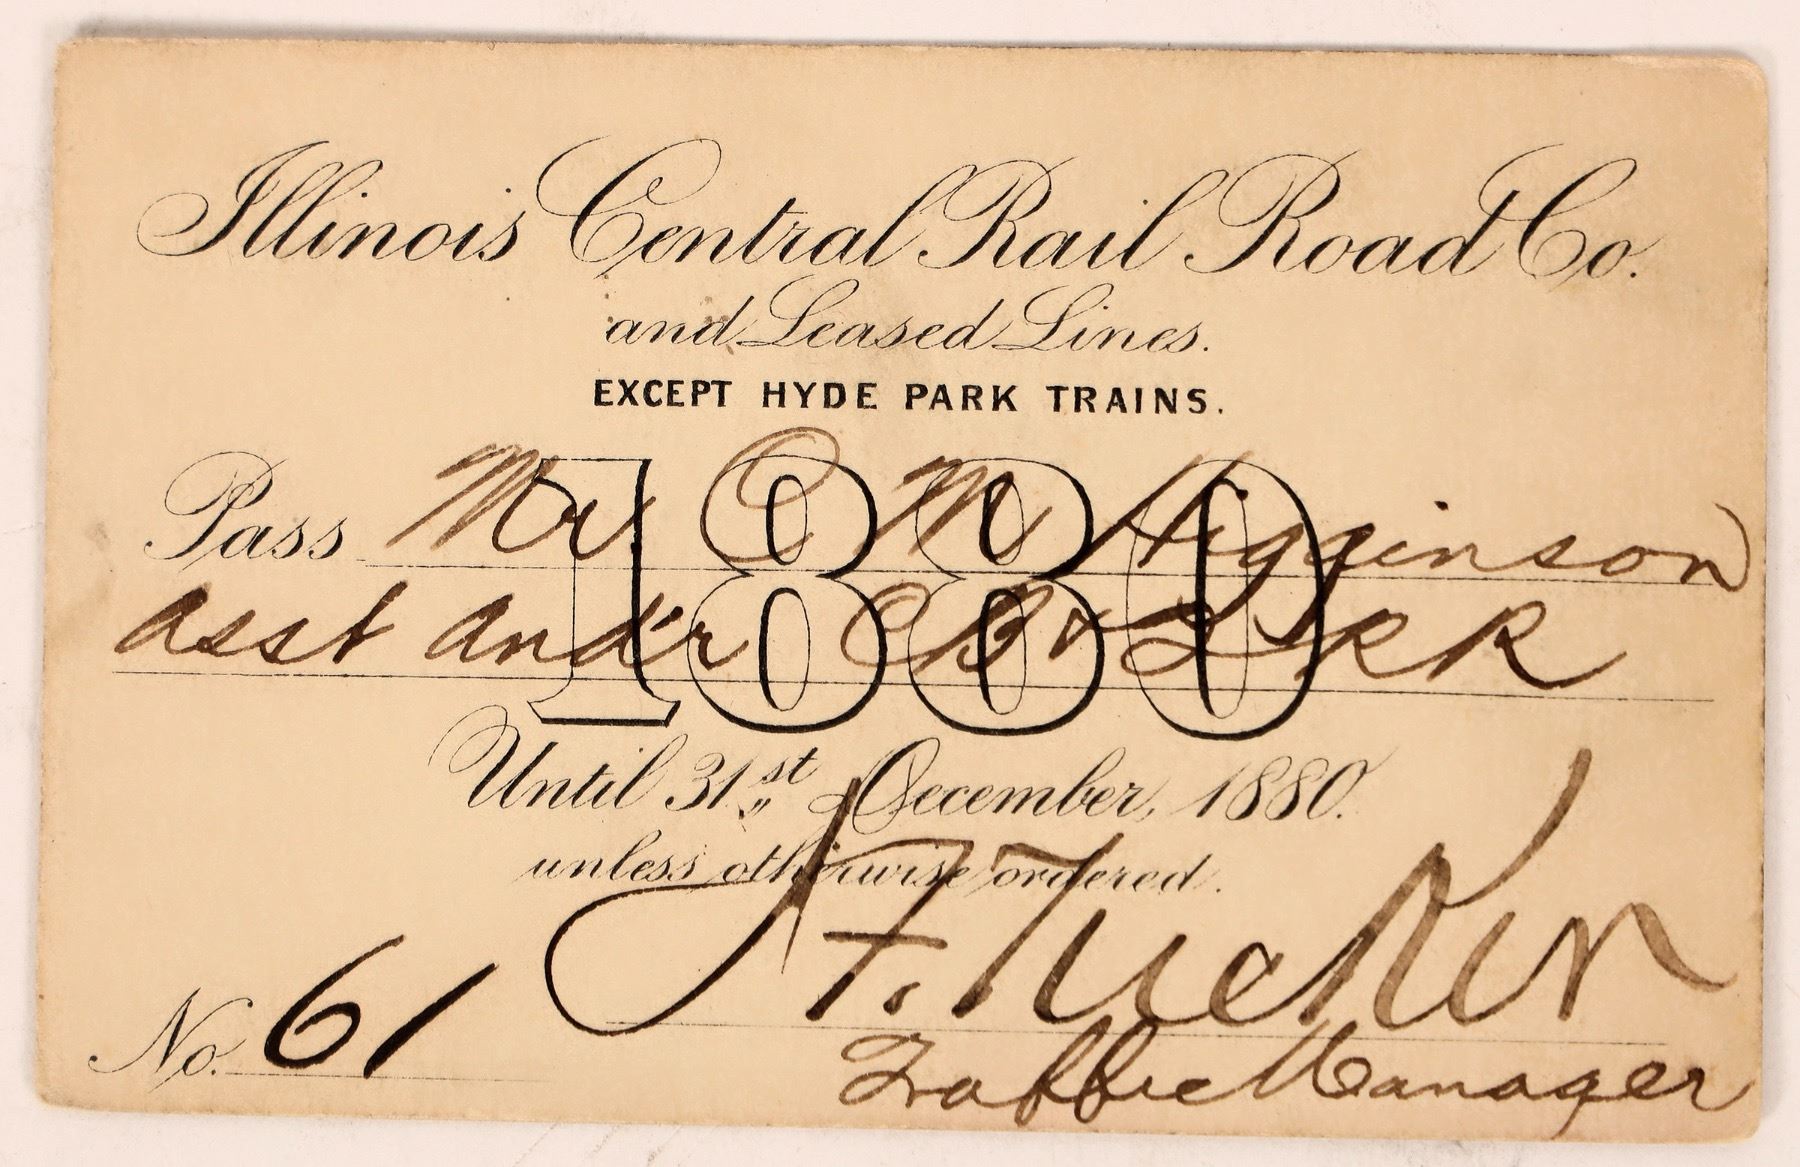 Illinois Central Rail Road Co.
and Leased Lines.
EXCEPT HYDE PARK TRAINS.
1880
Pass Mr. C M Higginson
asst aud'r C B & Q RR
Until 31st December, 1880.
unless otherwise ordered.
J. F. Tucker
No. 61
Traffic Manager